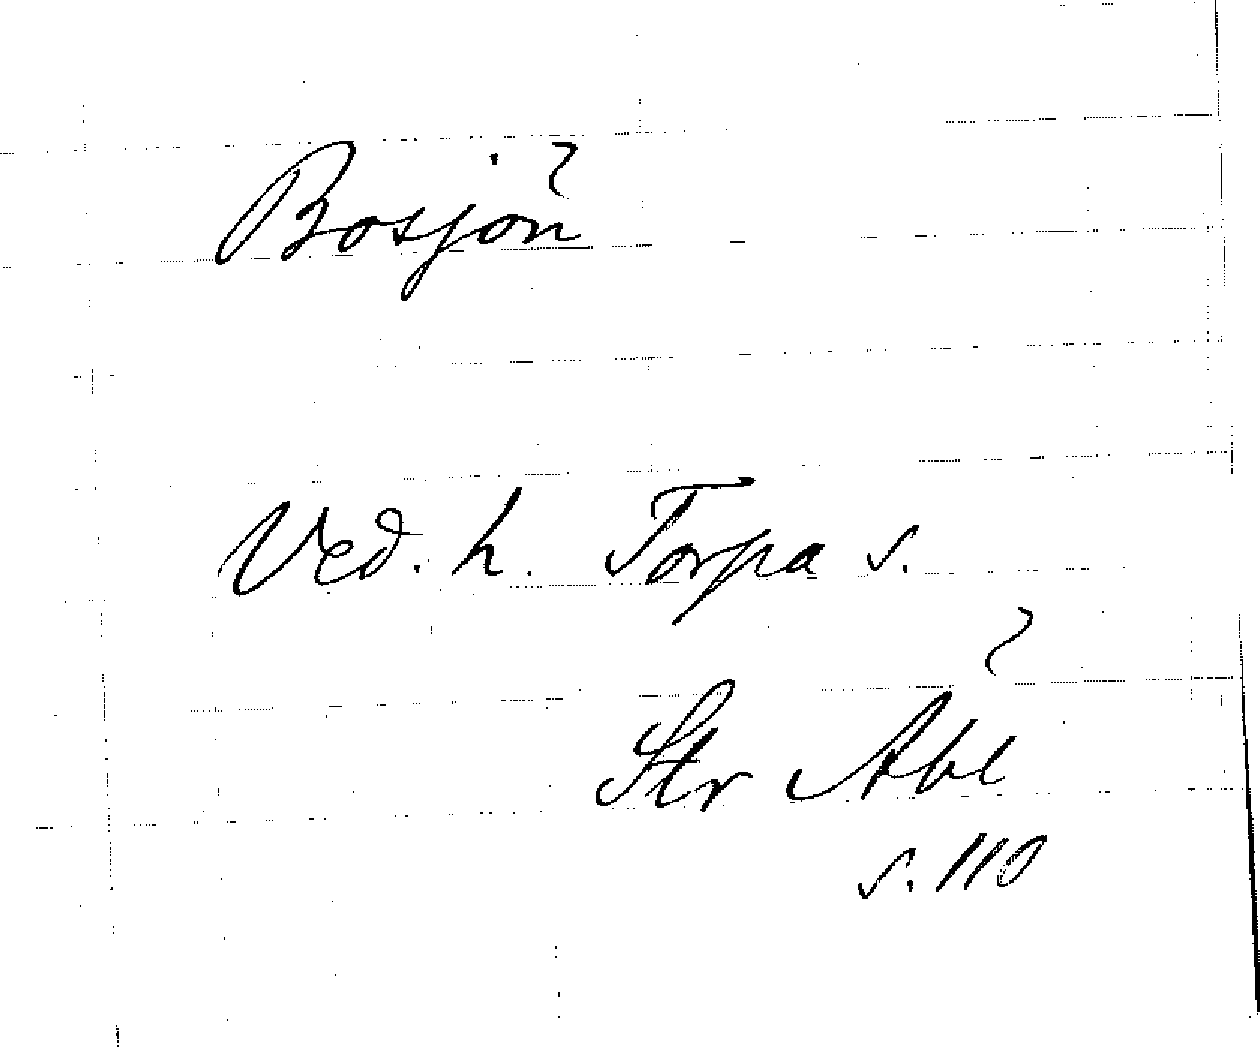 Bosjön
Ved. h. Torpa s.
Str Åbl
s. 110